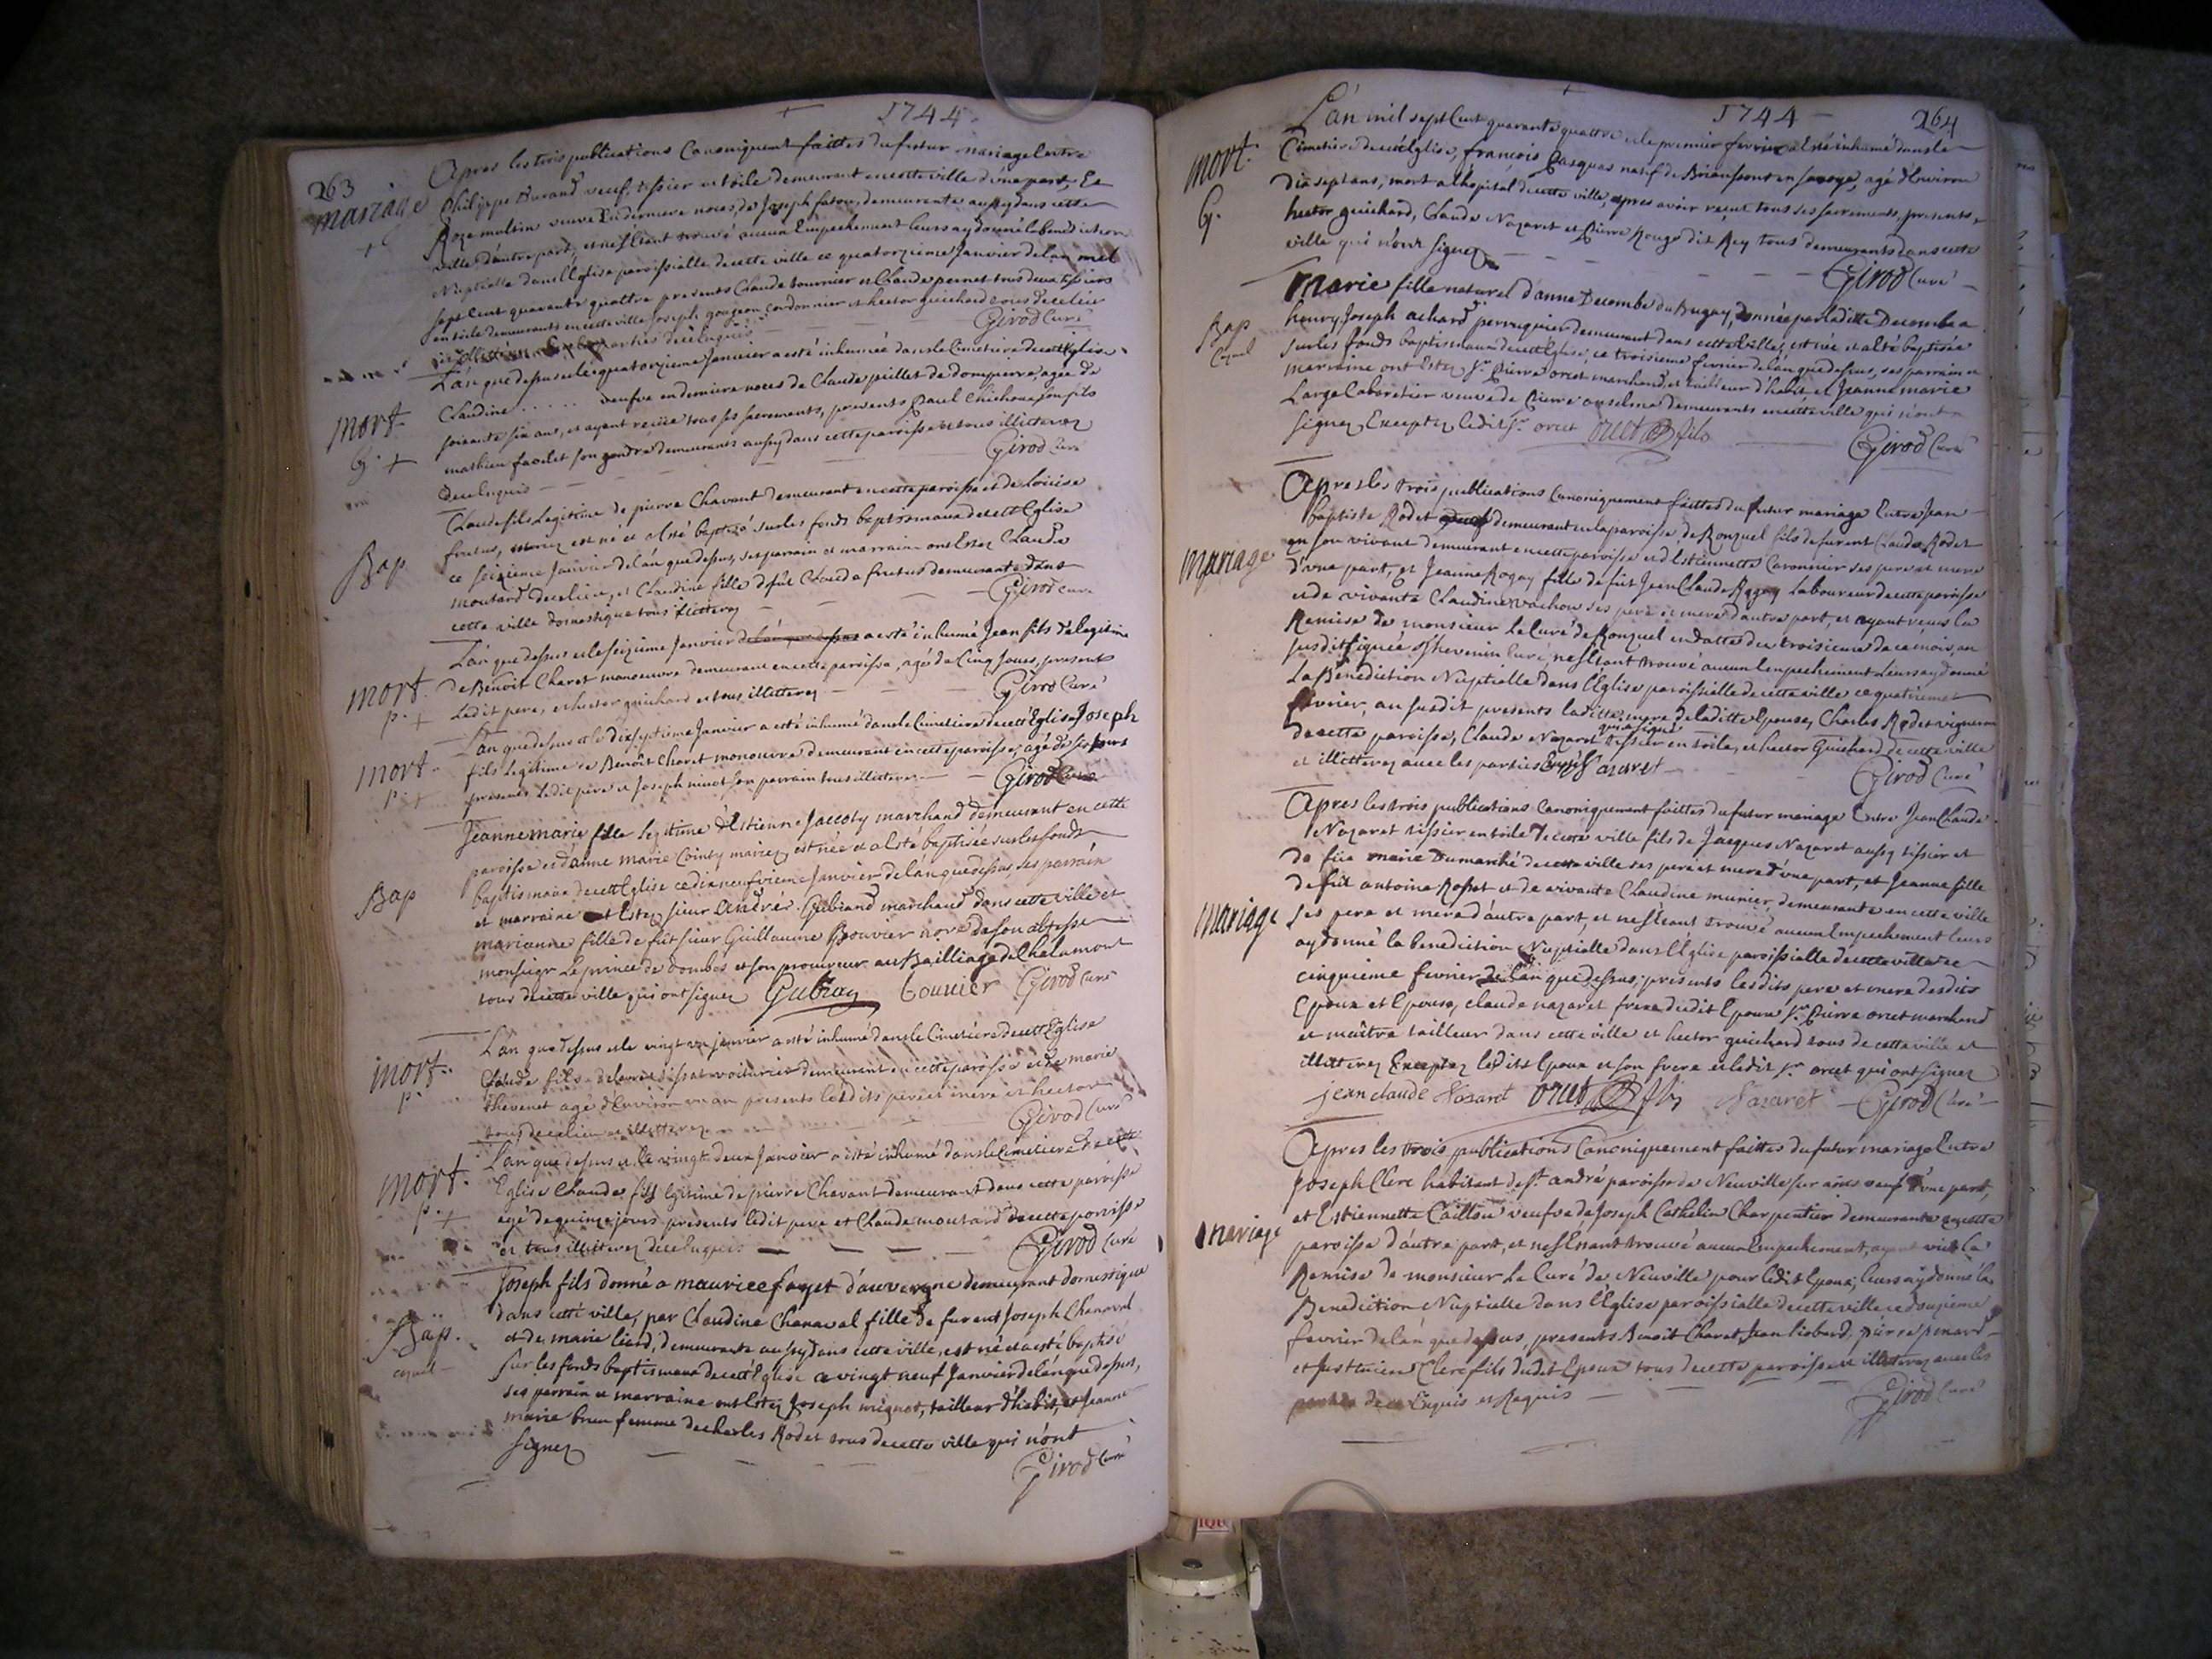 1744
263
mariage
Apres les trois publications Canoniquement faittes du futur mariage Entre
philippe Durand veuf, tissier en toile demeurant en cette ville d'une part, Et
Roze multin veuve En derniere noces, de Joseph faton, demeurante aussy dans cette
ville d'autre part, et ne s'étant trouvé aucun Empechement leurs ay donné la benediction
Nuptialle dans l'Eglise paroissialle de cette ville ce quatorzieme Janvier de l'an mil
sept cent quarante quattre presents Claude tournier et Claude pernet tous deux tissiers
en toile demeurants en cette ville Joseph gougeon cordonnier et hector guichard tous de ce lieu
Girod Curé
mort
G. +
L'an que dessus et le quatorzieme Janvier a esté inhumée dans le Cimetiere de cett'Eglise
Claudine ...... veufve en derniere noces de Claude peillet de dompierre, agée de
soixante six ans, et ayant reçüe tous ses sacrements, presents paul Chichoux son fils
mathieu facelet son gendre demeurants aussy dans cette paroisse et tous illitterez
de ce Enquis
Girod Curé
Bap
Claude fils Legitime de pierre Chavant demeurant en cette paroisse et de Loüise
frutus, mariez est né et a esté baptisé sur les fonds baptismaux de cett'Eglise
ce seizieme Janvier de l'an que dessus, ses parrain et marraine ont Estez Claude
moutard de ce lieu, et Claudine fille de füt Claude frutus demeurante dans
cette ville domestique tous illitterez
Girod curé
mort
p. +
L'an que dessus et le seizieme Janvier a esté inhumé Jean fils Legitime
de Benoit Charet manoeuvre demeurant en cette paroisse, agé de Cinq Jours, presents
Ledit pere, et hector guichard et tous illitterez
Girod Curé
mort
p. +
L'an que dessus et le dixseptieme Janvier a esté inhumé dans le Cimetiere de cett'Eglise Joseph
fils Legitime de Benoit Charet manoeuvre demeurant en cette paroisse, agé de six jours
presents Ledit pere et Joseph minot son parrain tous illitterez
Girod Curé
Bap
Jeanne marie fille legitime d'Estienne Jaccoty marchand demeurant en cette
paroisse et d'anne marie Cointy mariez, est née et a esté baptisée sur les fonds
baptismaux de cett'Eglise ce dixneufvieme Janvier de l'an que dessus ses parrain
et marraine ont Estez sieur andré Gubiand marchand dans cette ville et
marianne fille de füt sieur Guillaume Bouvier nore de son altesse
monseigr Le prince de dombes et son procureur au Bailliage de Chalamont
tous de cette ville qui ont signez Gubian Bouvier Girod curé
mort
p.
L'an que dessus et le vingt un janvier a esté inhumé dans le Cimetiere de cett'Eglise
Claude fils de voiturier demeurant en cette paroisse et de marie
thevenet agé d'Environ un an presents lesdits pere et mere et hector
tous de ce lieu et illitterez
Girod Curé
mort
p. +
L'an que dessus et le vingt deux Janvier a esté inhumé dans le Cimetiere de cette
Eglise Claude fils legitime de pierre Chavant demeurant dans cette paroisse
agé de quinze jours presents ledit pere et Claude moutard de cette paroisse
et tous illitterez de ce Enquis
Girod curé
Bap.
Joseph fils donné a maurice fayet d'auvergne demeurant domestique
dans cette ville, par Claudine Chanaval fille de furent Joseph Chanaval
et de marie liard, demeurante aussy dans cette ville, est né et a esté baptisé
sur les fonds baptismaux de cett'Eglise ce vingt neuf Janvier de l'an que dessus,
ses parrain et marraine ont Estez Joseph mignot, tailleur d'habit, et Jeanne
marie brun femme de charles Rodet tous de cette ville qui n'ont
signez
Girod Curé
1744
264
mort
G.
L'an mil sept Cent quarante quattre et le premier fevrier a esté inhumé dans le
Cimetiere de cett'Eglise, françois pasquas natif de Brianssont en savoye, agé d'Environ
dixsept ans, mort a l'hopital de cette ville, apres avoir reçeut tous ses sacrements, presents
hector guichard, Claude Nazaret et Pierre Rouge dit Rey tous demeurants dans cette
ville qui n'ont signez
Girod Curé
Bap
marie fille naturel d'anne Decombe du Bugay, donnée par laditte Decombe a
henry Joseph achard perruquier demeurant dans cette ville, est née et a esté baptisée
sur les fonds baptismaux de cett'Eglise, ce troisieme fevrier de l'an que dessus, ses parrain et
marraine ont Estez Sr. Pierre orcet marchand, et tailleur d'habit et Jeanne marie
Large Cabaretier veuve de Pierre anselme demeurants en cette ville qui n'ont
signez Exceptez ledit Sr. orcet orcet fils
Girod Curé
mariage
Apres les trois publications Canoniquement faittes du futur mariage Entre Jean
baptiste Rodet demeurant en la paroisse de Ronzuel fils de furent Claude Rodet
en son vivant demeurant en cette paroisse et d'Estiennette Caronnier ses pere et mere
d'une part, Et Jeanne Rogay fille de füt Jean Claude Rogay Laboureur de cette paroisse
et de vivante Claudine vachon ses pere et mere d'autre part, et ayant reçeu la
Remise de monsieur Le Curé de Ronzuel en datte du troisieme de ce mois, an
susdit signée Thevenin Curé, ne s'étant trouvé aucun Empechement Leurs ay donné
La Benediction Nuptialle dans l'Eglise paroissialle de cette ville ce quatrieme
fevrier, an susdit presents laditte mere de laditte Epouse, Charles Rodet vigneron
de cette paroisse, Claude Nazaret tissier en toile, et hector Guichard de cette ville
et illitterez avec les parties Nazaret
Girod Curé
mariage
Apres les trois publications Canoniquement faittes du futur mariage Entre Jean Claude
Nazaret tissier en toile de cette ville fils de Jacques Nazaret aussy tissier et
de füe marie Dumarché de cette ville ses pere et mere d'une part, et Jeanne fille
de füt antoine Rosset et de vivante Claudine munier, demeurante en cette ville
ses pere et mere d'autre part, et ne s'étant trouvé aucun Empechement leurs
ay donné la benediction Nuptialle dans l'Eglise paroissialle de cette ville ce
cinquieme fevrier de l'an que dessus, presents lesdits pere et mere desdits
Epoux et Epouse, claude nazaret frere dudit Epoux Sr. Pierre orcet marchand
et maitre tailleur dans cette ville et hector guichard tous de cette ville et
illitterez Exceptez ledits Epoux et son frere et ledit Sr. orcet qui ont signez
jean claude Nazaret orcet fils Nazaret Girod Curé
mariage
Apres les trois publications Canoniquement faittes du futur mariage Entre
Joseph Clerc habitant de St. andré paroisse de Neuville sur ains veuf d'une part,
et Estiennette Caillou veufve de Joseph Cathelin Charpentier demeurante en cette
paroisse d'autre part, et ne s'Etant trouvé aucun Empechement, ayant vüe la
Remise de monsieur Le Curé de Neuville pour ledit Epoux; leurs ay donné la
Benediction Nuptialle dans l'Eglise paroissialle de cette ville ce douzieme
fevrier de l'an que dessus, presents Benoit Charet, Jean liobard, pierre penard
et Clerc fils dudit Epoux tous de cette paroisse et illitterez avec les
parties de ce Enquis et Requis
Girod Curé